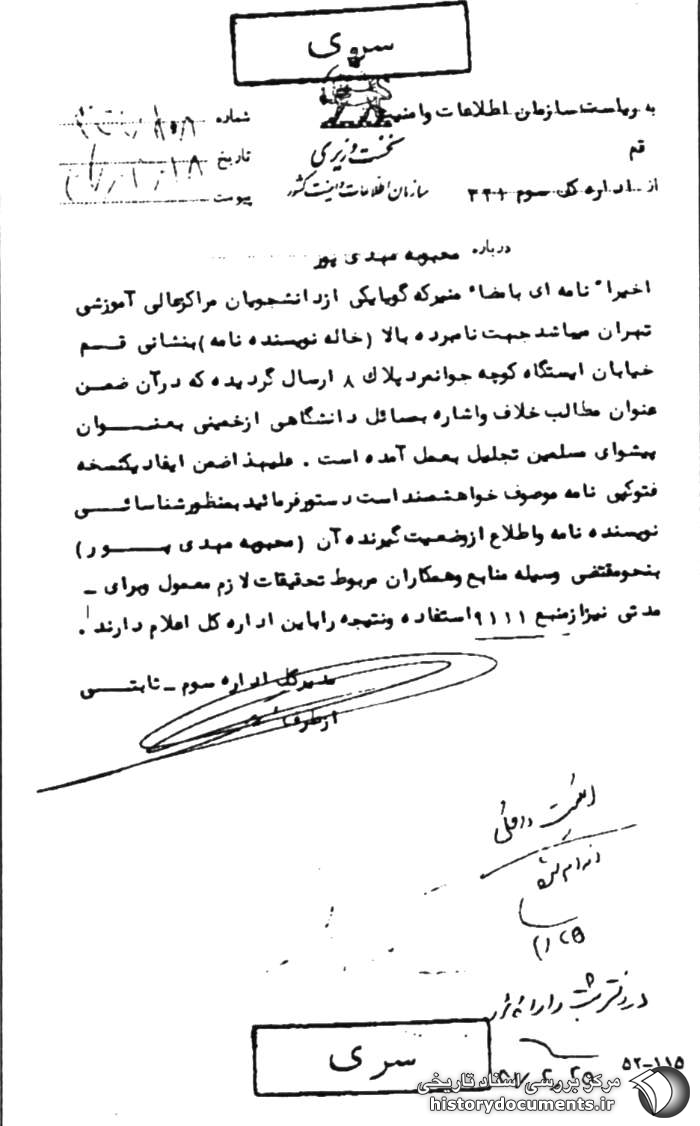 سری
به ریاست سازمان اطلاعات و امنیت
قم
از اداره کل سوم ۳۳۱
نخست وزیری
سازمان اطلاعات و امنیت کشور
شماره
تاریخ
پیوست
درباره محبوبه مهدی پور
اخیرا" نامه ای بامضاء منیرکه گویایکی ازدانشجویان مراکزعالی آموزشی
تهران میباشد جهت نامبرده بالا (خاله نویسنده نامه) بنشانی قـم
خیابان ایستگاه کوچه جوانمرد پلاک ۸ ارسال گردیده که درآن ضمن
عنوان مطالب خلاف واشاره بمسائل دانشگاهی ازخمینی بعنـوان
پیشوای مسلمین تجلیل بعمل آمده است . علیهذا ضمن ایفاد یکنسخه
فتوکپی نامه موصوف خواهشمند است دستورفرمائید بمنظورشناسائـی
نویسنده نامه واطلاع ازوضعیت گیرنده آن (محبوبه مهدی پـور)
بنحومقتضی وسیله منابع وهمکاران مربوط تحقیقات لازم معمول وبرای ـ
مدتی نیزازمنبع ۹۱۱۱ استفاده ونتیجه راباین اداره کل اعلام دارند .
مدیرکل اداره سوم ـ ثابتـی
ازطرف
امنیت داخلی
سری
۵۲-۱۱۵
مرکز بررسی اسناد تاریخی
historydocuments.ir